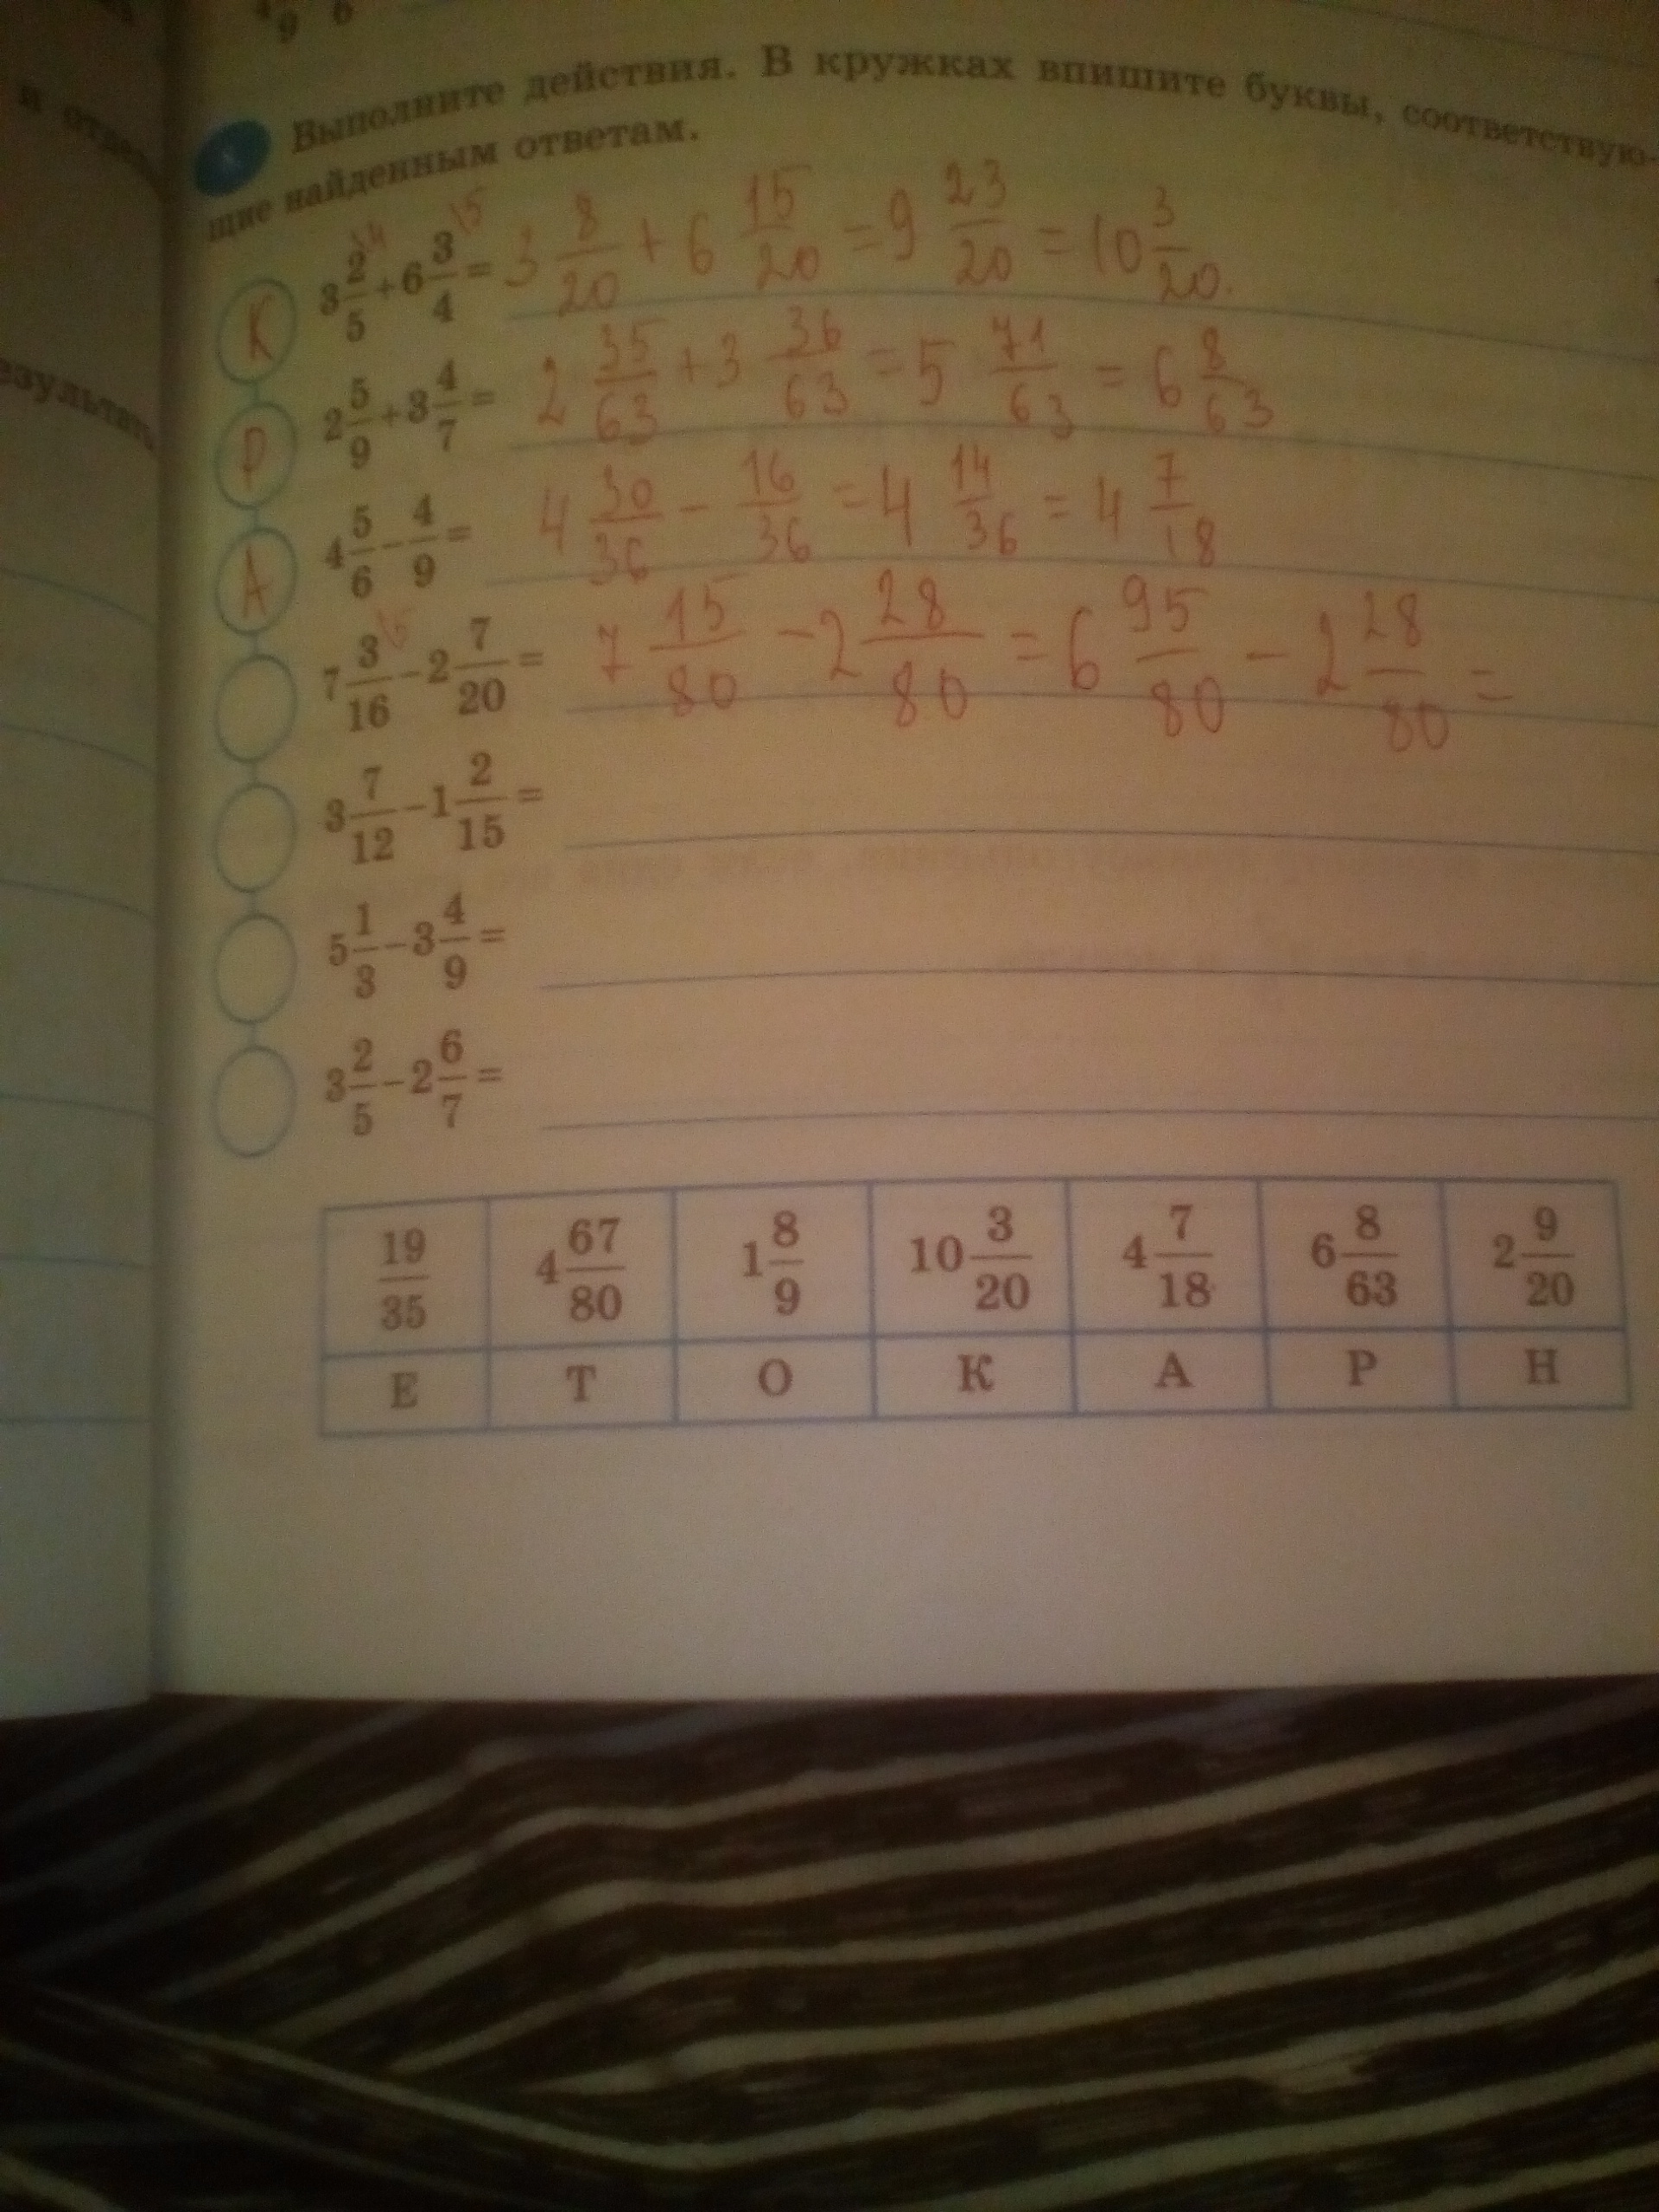 9 6
Выполните действия. В кружках впишите буквы, соответствую-
щие найденным ответам.
К 3 2/5 + 6 3/4 = 3 8/20 + 6 15/20 = 9 23/20 = 10 3/20.
Р 2 5/9 + 3 4/7 = 2 35/63 + 3 36/63 = 5 71/63 = 6 8/63
А 4 5/6 - 4/9 = 4 30/36 - 16/36 = 4 14/36 = 4 7/18
7 3/16 - 2 7/20 = 7 15/80 - 2 28/80 = 6 95/80 - 2 28/80 =
3 7/12 - 1 2/15 =
5 1/3 - 3 4/9 =
3 2/5 - 2 6/7 =
19/35 4 67/80 1 8/9 10 3/20 4 7/18 6 8/63 2 9/20
Е Т О К А Р Н